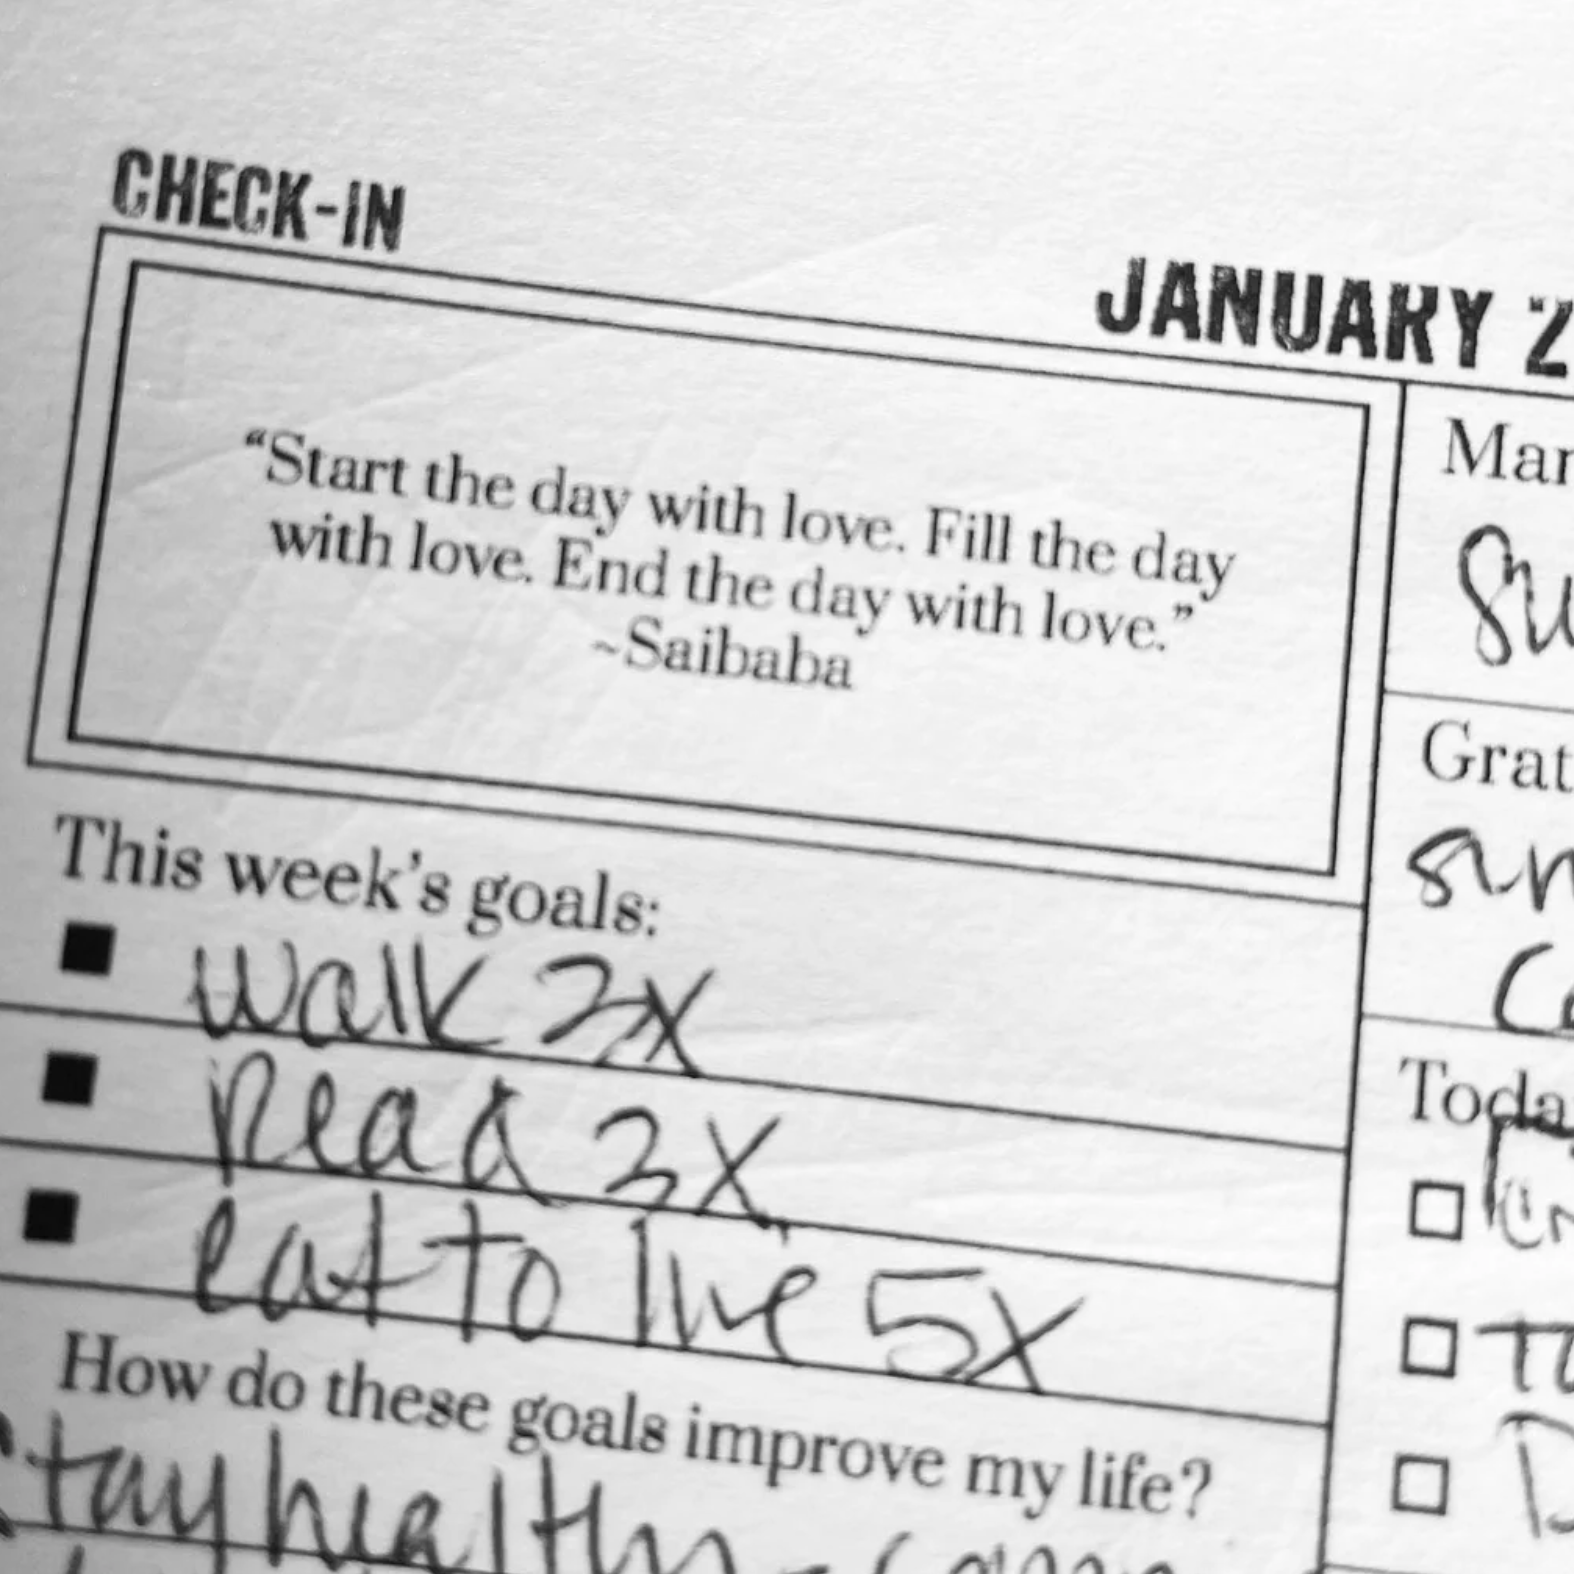 CHECK-IN
JANUARY
“Start the day with love. Fill the day
with love. End the day with love.”
~Saibaba
This week's goals:
walk 2x
Read 2x
eat to live 5x
How do these goals improve my life?
Stay healthy -